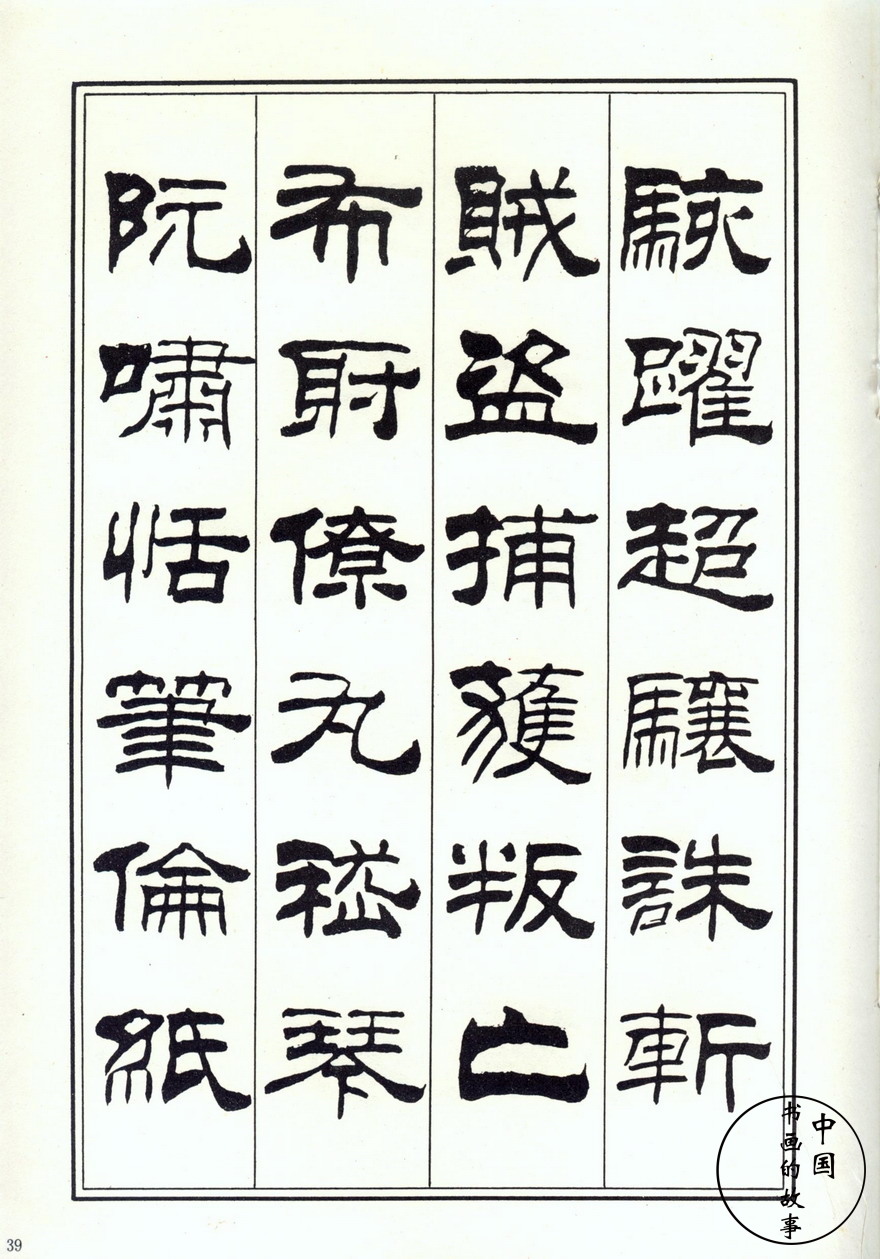 駭躍超驤誅斬
賊盜捕獲叛亡
布射僚丸嵇琴
阮嘯恬筆倫紙
中国
书画的故事
39